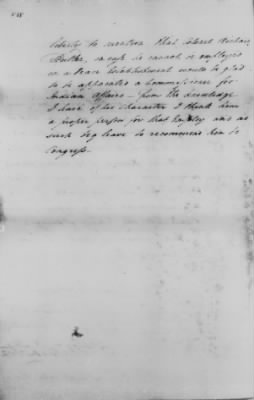 liberty to mention that Colonel Richard
Butler, in case he cannot be employed
on a Peace Establishment would be glad
to be appointed a Commissioner for
Indian Affairs — from the knowledge
I have of his character I think him
a proper person for that Employ and as
such beg leave to recommend him to
Congress.